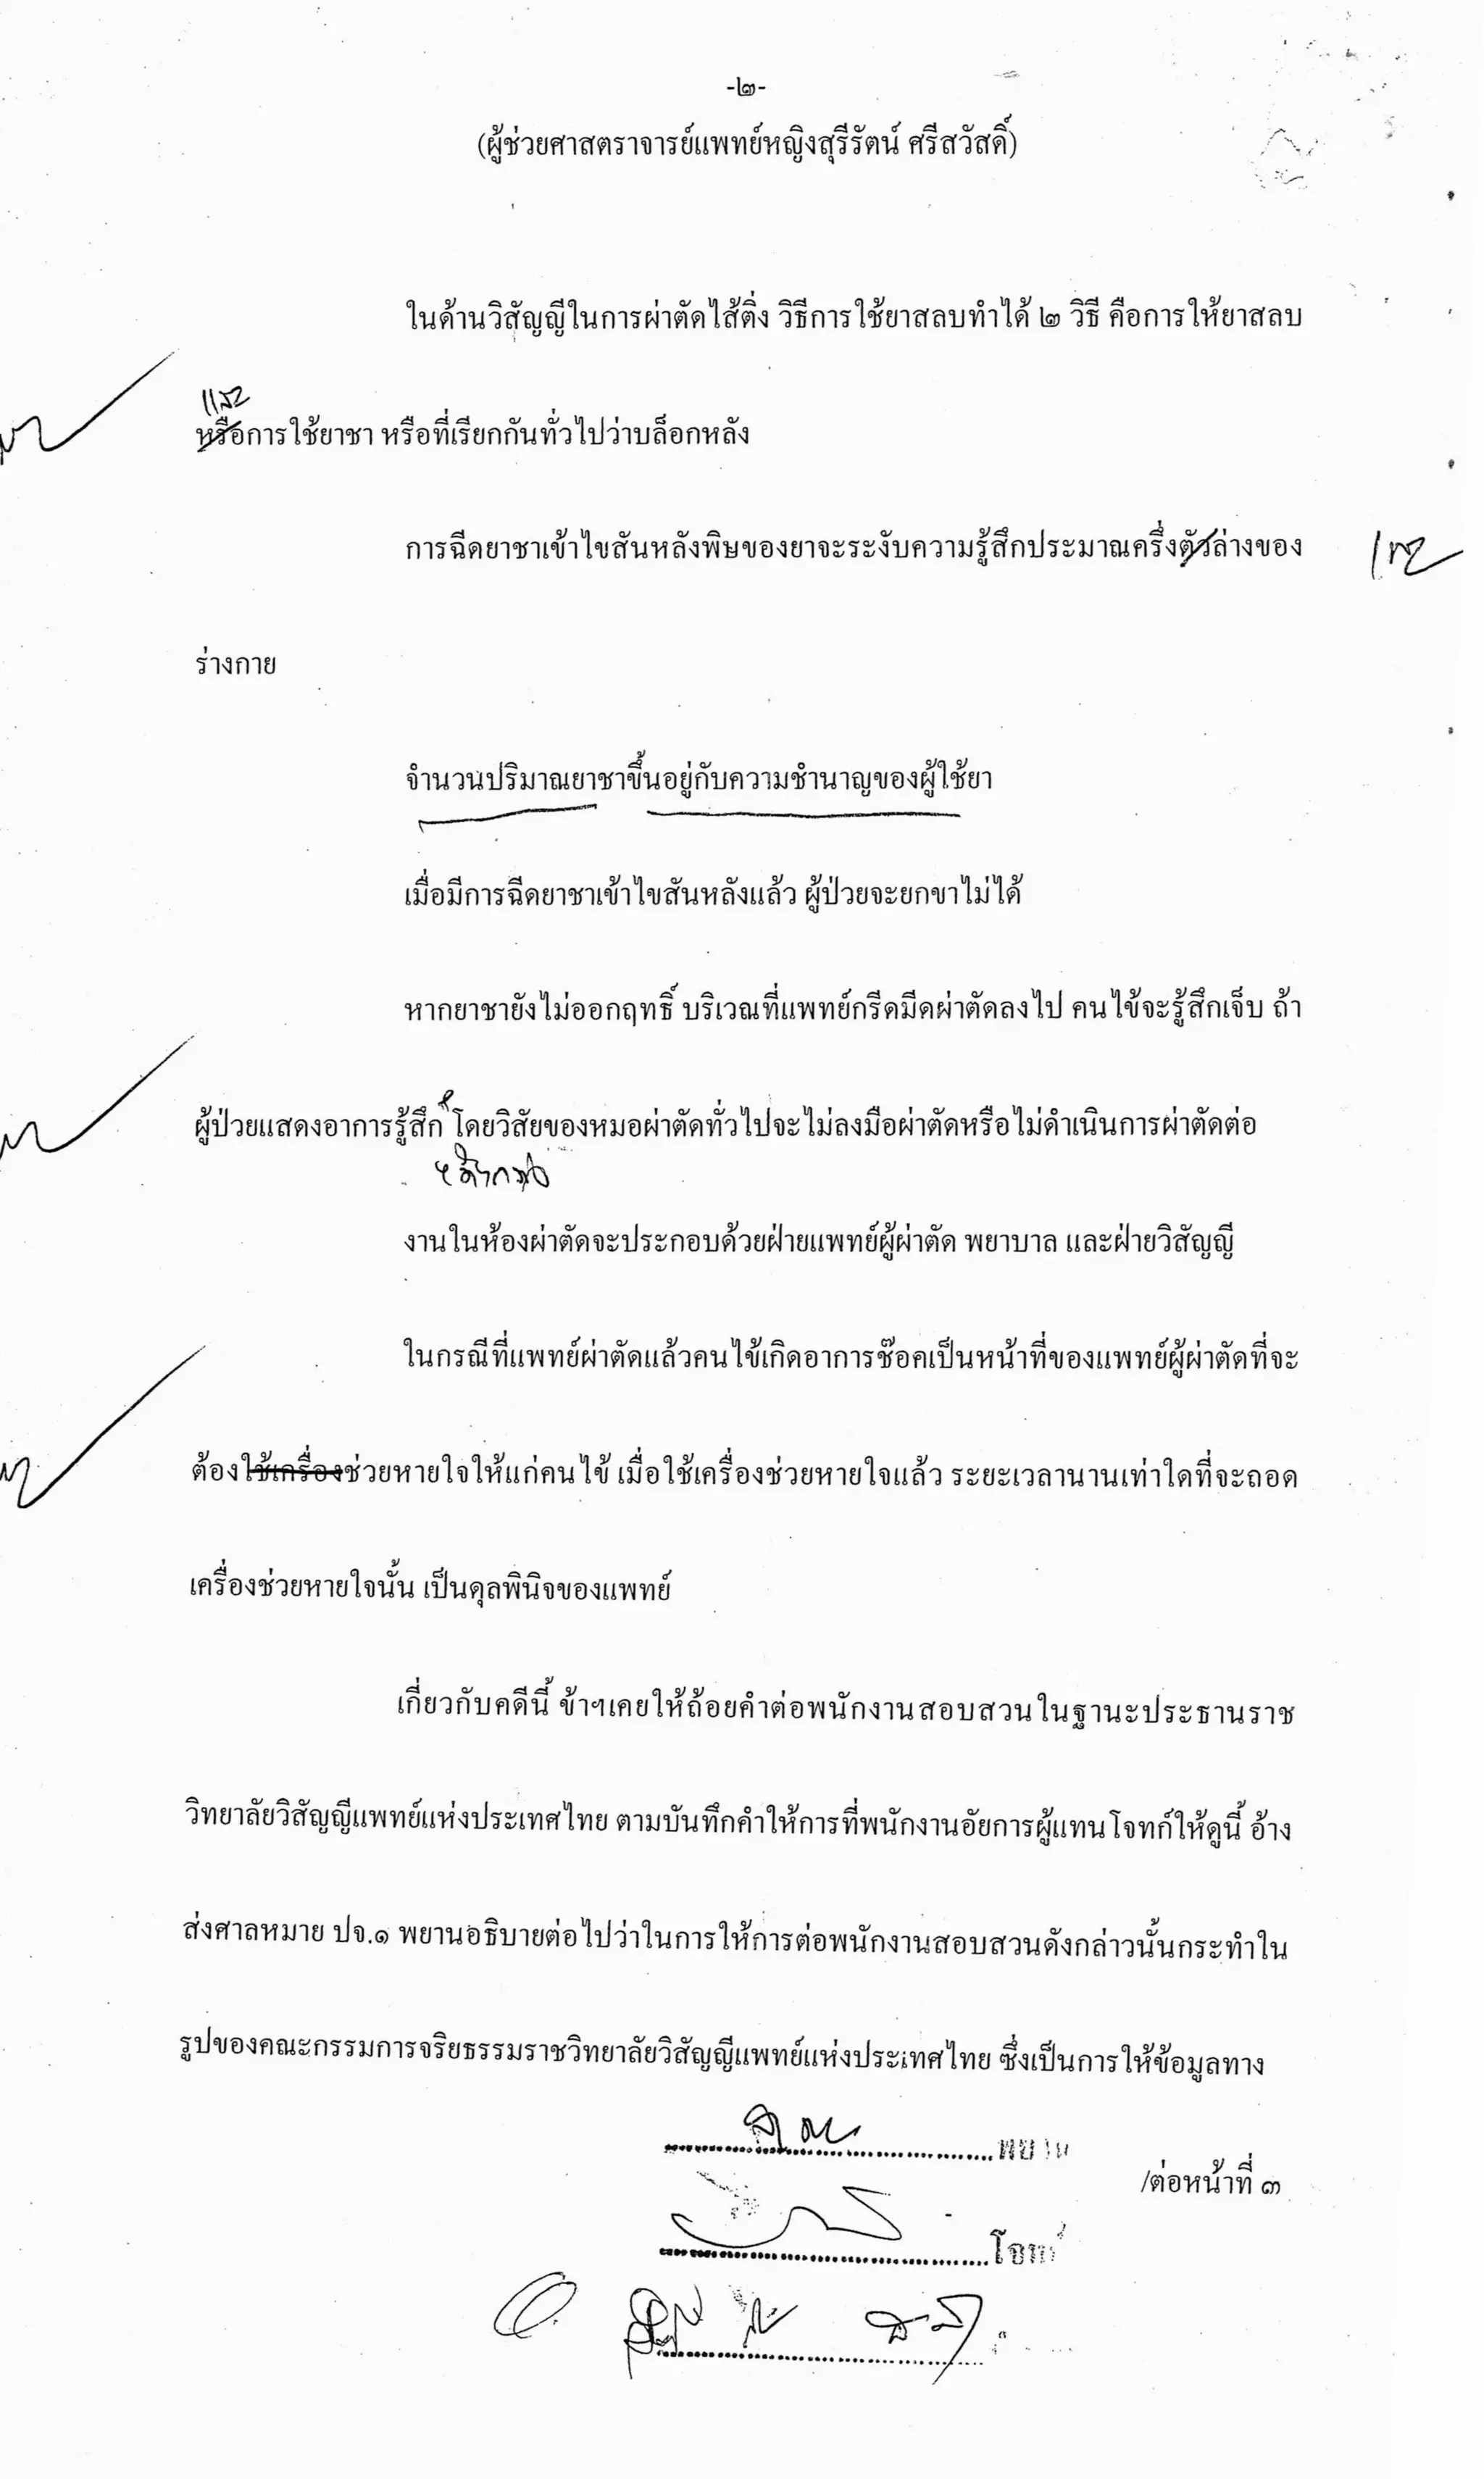 -๒-
(ผู้ช่วยศาสตราจารย์แพทย์หญิงสุรีรัตน์ ศรีสวัสดิ์)
ในด้านวิสัญญีในการผ่าตัดไส้ติ่ง วิธีการใช้ยาสลบทำได้ ๒ วิธี คือการให้ยาสลบ
และ
หรือการใช้ยาชา หรือที่เรียกกันทั่วไปว่าบล็อกหลัง
การฉีดยาชาเข้าไขสันหลังพิษของยาจะระงับความรู้สึกประมาณครึ่งตัวล่างของ
ร่างกาย
จำนวนปริมาณยาชาขึ้นอยู่กับความชำนาญของผู้ใช้ยา
เมื่อมีการฉีดยาชาเข้าไขสันหลังแล้ว ผู้ป่วยจะยกขาไม่ได้
หากยาชายังไม่ออกฤทธิ์ บริเวณที่แพทย์กรีดมีดผ่าตัดลงไป คนไข้จะรู้สึกเจ็บ ถ้า
ผู้ป่วยแสดงอาการรู้สึก โดยวิสัยของหมอผ่าตัดทั่วไปจะไม่ลงมือผ่าตัดหรือไม่ดำเนินการผ่าตัดต่อ
งานในห้องผ่าตัดจะประกอบด้วยฝ่ายแพทย์ผู้ผ่าตัด พยาบาล และฝ่ายวิสัญญี
ในกรณีที่แพทย์ผ่าตัดแล้วคนไข้เกิดอาการช๊อคเป็นหน้าที่ของแพทย์ผู้ผ่าตัดที่จะ
ต้องใช้เครื่องช่วยหายใจให้แก่คนไข้ เมื่อใช้เครื่องช่วยหายใจแล้ว ระยะเวลานานเท่าใดที่จะถอด
เครื่องช่วยหายใจนั้น เป็นดุลพินิจของแพทย์
เกี่ยวกับคดีนี้ ข้าฯเคยให้ถ้อยคำต่อพนักงานสอบสวนในฐานะประธานราช
วิทยาลัยวิสัญญีแพทย์แห่งประเทศไทย ตามบันทึกคำให้การที่พนักงานอัยการผู้แทนโจทก์ให้ดูนี้ อ้าง
ส่งศาลหมาย ปจ.๑ พยานอธิบายต่อไปว่าในการให้การต่อพนักงานสอบสวนดังกล่าวนั้นกระทำใน
รูปของคณะกรรมการจริยธรรมราชวิทยาลัยวิสัญญีแพทย์แห่งประเทศไทย ซึ่งเป็นการให้ข้อมูลทาง
พยาน
/ต่อหน้าที่ ๓
โจทก์